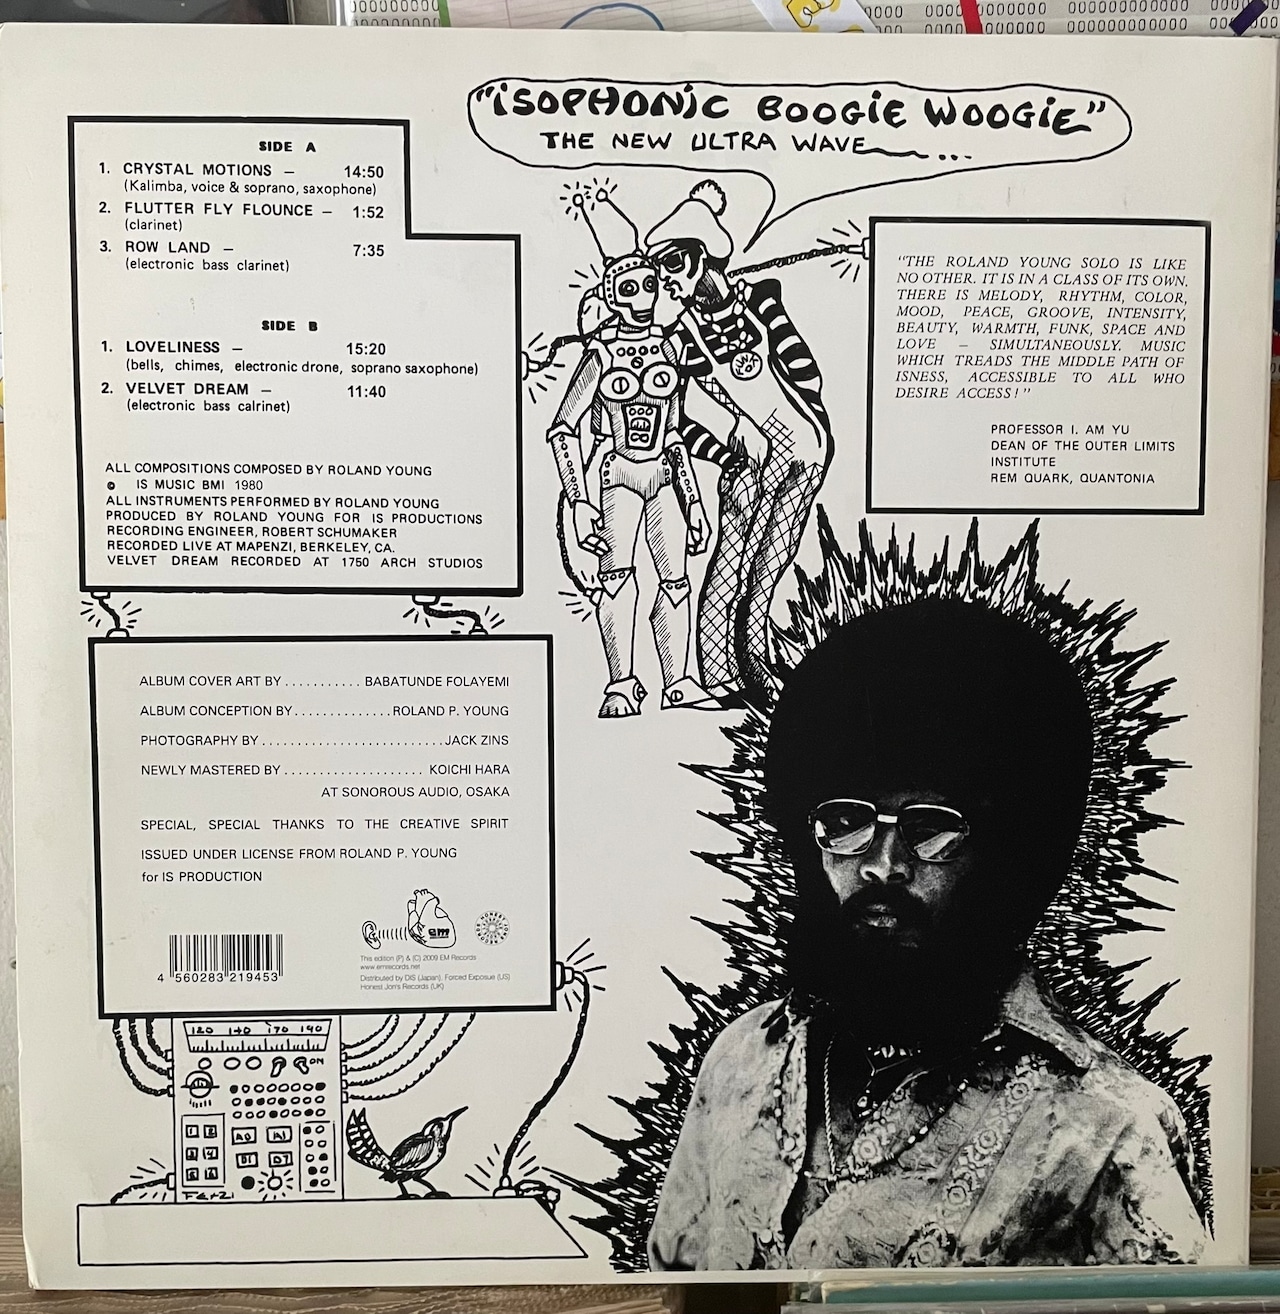 "iSOPHONiC BOOGiE WOOGiE"
THE NEW ULTRA WAVE ...
SIDE A
1. CRYSTAL MOTIONS – 14:50
(Kalimba, voice & soprano, saxophone)
2. FLUTTER FLY FLOUNCE – 1:52
(clarinet)
3. ROW LAND – 7:35
(electronic bass clarinet)
SIDE B
1. LOVELINESS – 15:20
(bells, chimes, electronic drone, soprano saxophone)
2. VELVET DREAM – 11:40
(electronic bass calrinet)
ALL COMPOSITIONS COMPOSED BY ROLAND YOUNG
© IS MUSIC BMI 1980
ALL INSTRUMENTS PERFORMED BY ROLAND YOUNG
PRODUCED BY ROLAND YOUNG FOR IS PRODUCTIONS
RECORDING ENGINEER, ROBERT SCHUMAKER
RECORDED LIVE AT MAPENZI, BERKELEY, CA.
VELVET DREAM RECORDED AT 1750 ARCH STUDIOS
"THE ROLAND YOUNG SOLO IS LIKE
NO OTHER. IT IS IN A CLASS OF ITS OWN.
THERE IS MELODY, RHYTHM, COLOR,
MOOD, PEACE, GROOVE, INTENSITY,
BEAUTY, WARMTH, FUNK, SPACE AND
LOVE – SIMULTANEOUSLY. MUSIC
WHICH TREADS THE MIDDLE PATH OF
ISNESS, ACCESSIBLE TO ALL WHO
DESIRE ACCESS!"
PROFESSOR I. AM YU
DEAN OF THE OUTER LIMITS
INSTITUTE
REM QUARK, QUANTONIA
ALBUM COVER ART BY ........... BABATUNDE FOLAYEMI
ALBUM CONCEPTION BY.............. ROLAND P. YOUNG
PHOTOGRAPHY BY .......................... JACK ZINS
NEWLY MASTERED BY .................... KOICHI HARA
AT SONOROUS AUDIO, OSAKA
SPECIAL, SPECIAL THANKS TO THE CREATIVE SPIRIT
ISSUED UNDER LICENSE FROM ROLAND P. YOUNG
for IS PRODUCTION
em
4 560283 219453
This edition (P) & (C) 2009 EM Records
www.emrecords.net
Distributed by DIS (Japan). Forced Exposure (US)
Honest Jon's Records (UK)
120 140 170 190
ON